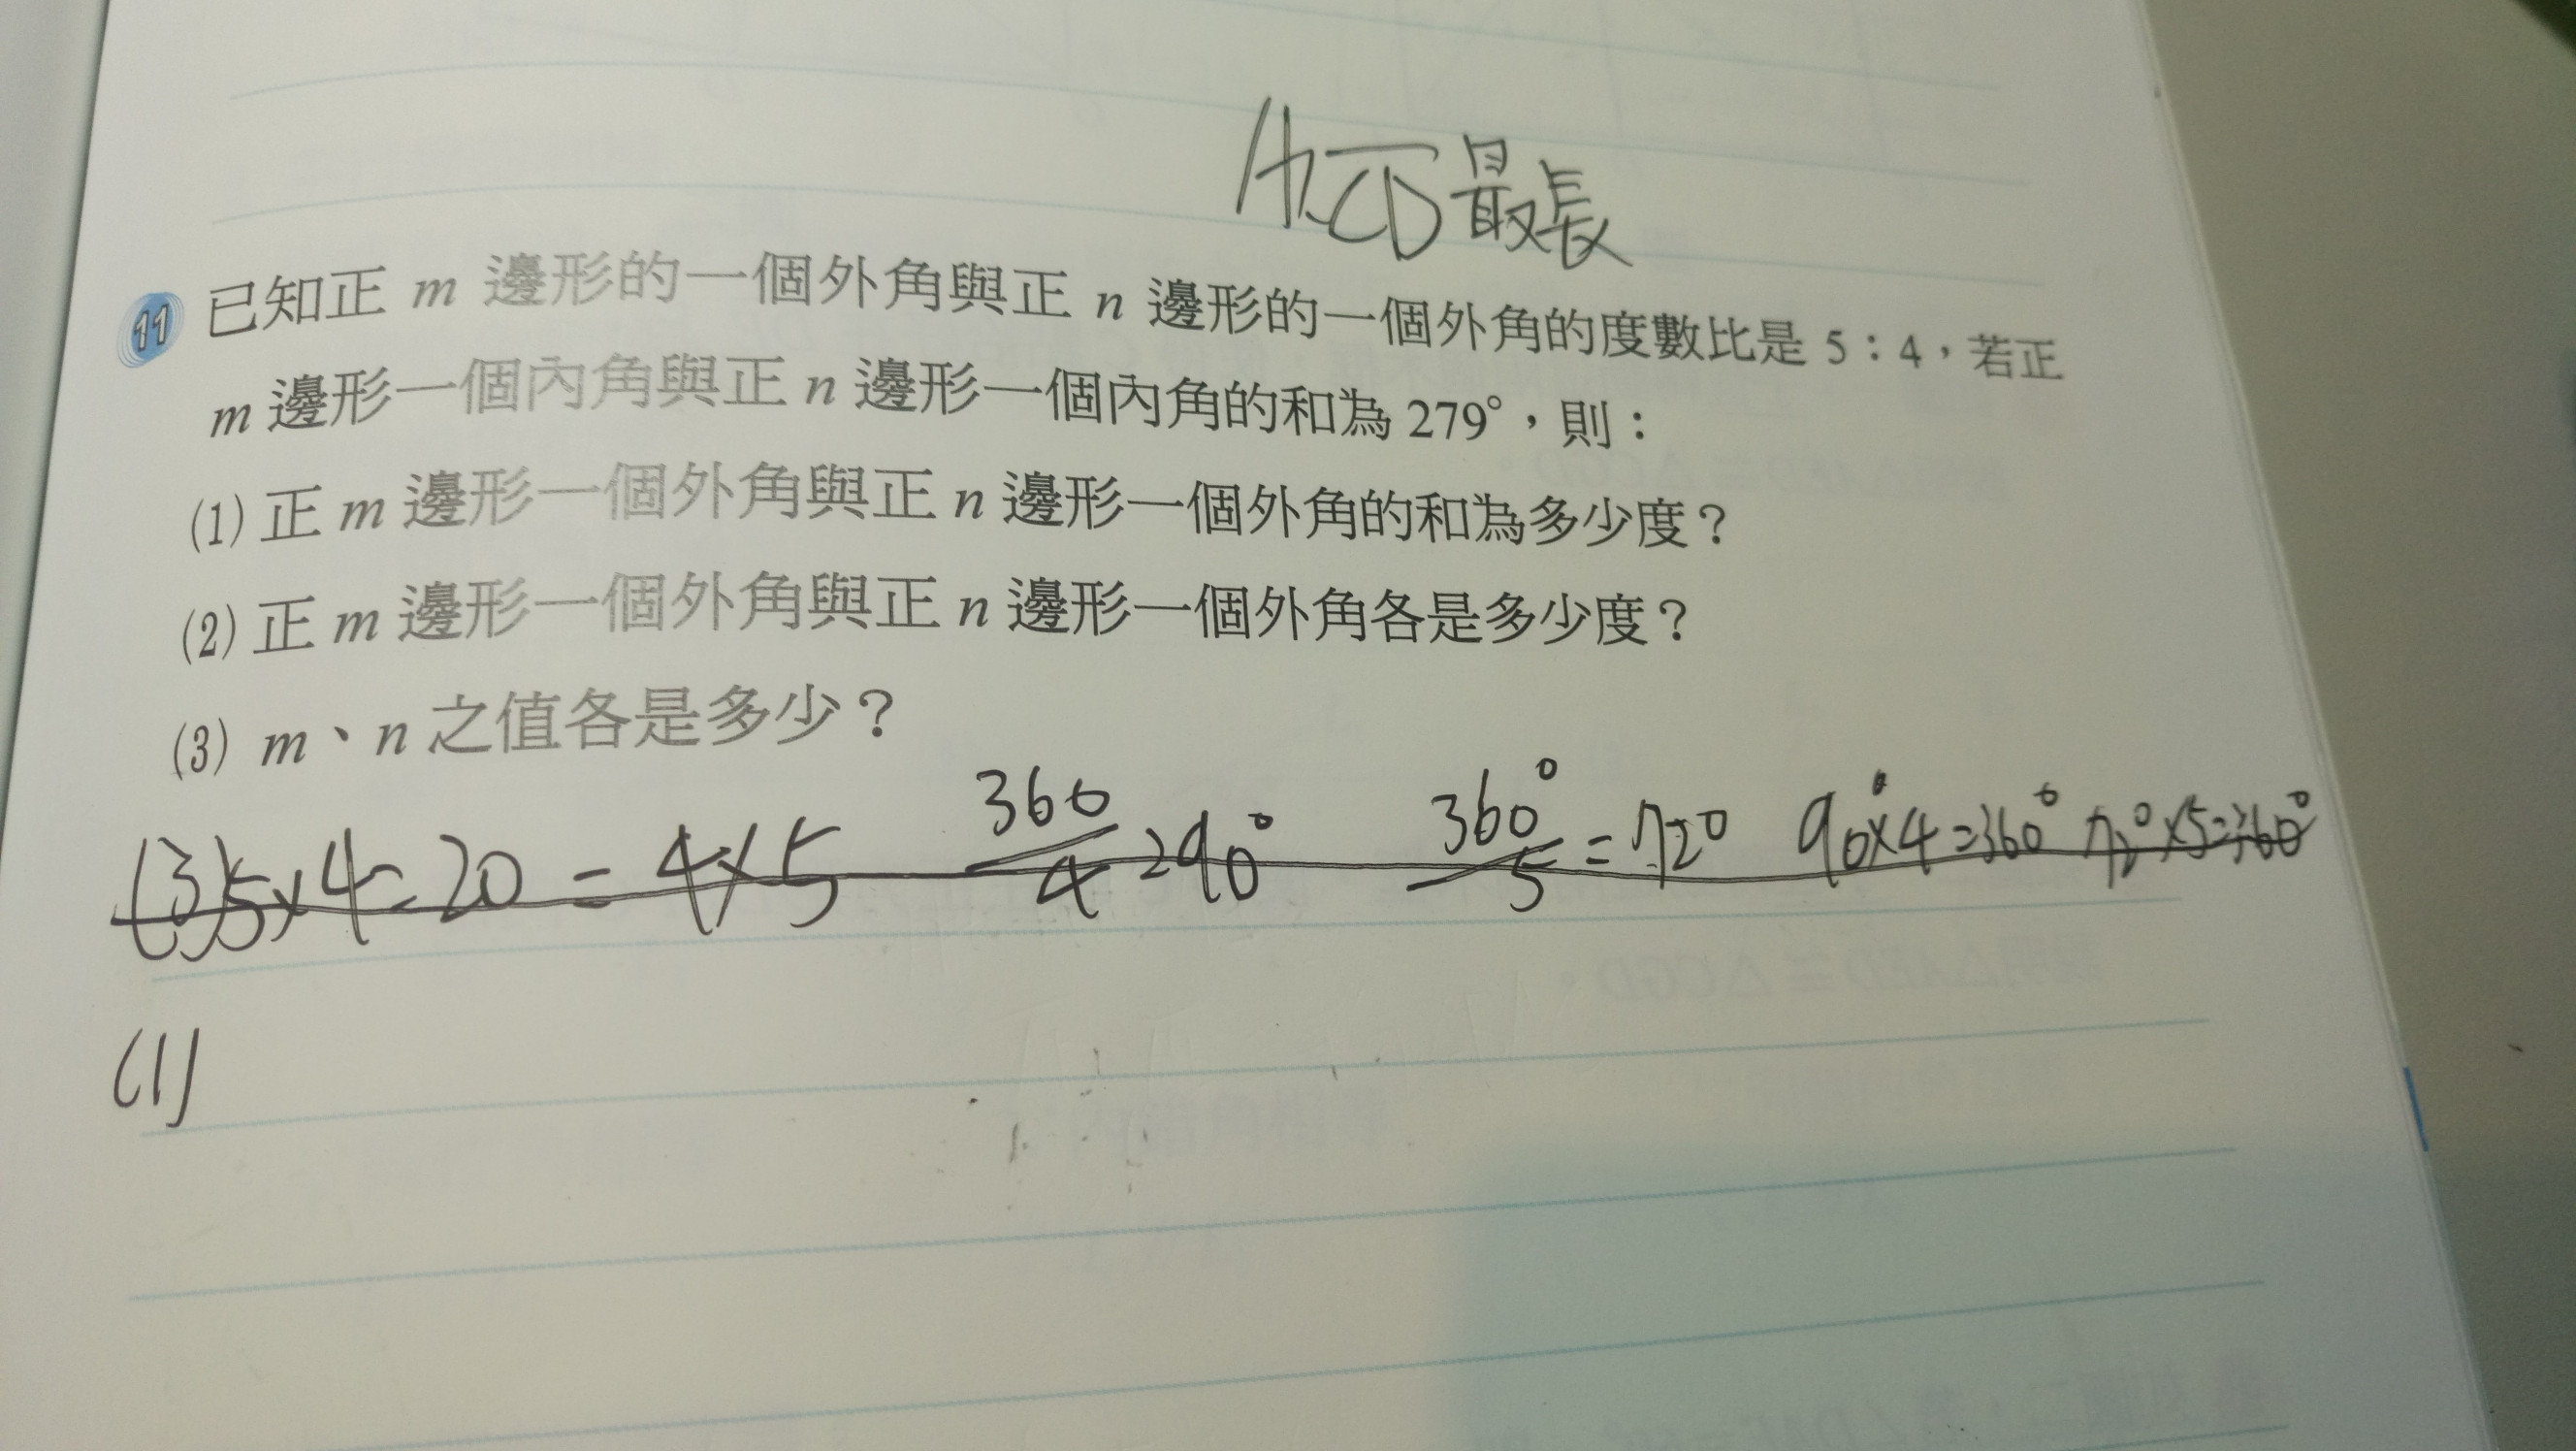 A:CD最長
11 已知正 m 邊形的一個外角與正 n 邊形的一個外角的度數比是 5：4，若正
m 邊形一個內角與正 n 邊形一個內角的和為 279°，則：
(1) 正 m 邊形一個外角與正 n 邊形一個外角的和為多少度？
(2) 正 m 邊形一個外角與正 n 邊形一個外角各是多少度？
(3) m、n 之值各是多少？
(3)5×4=20=4×5 360/4=90° 360°/5=72° 90°×4=360° 72°×5=360°
(1)